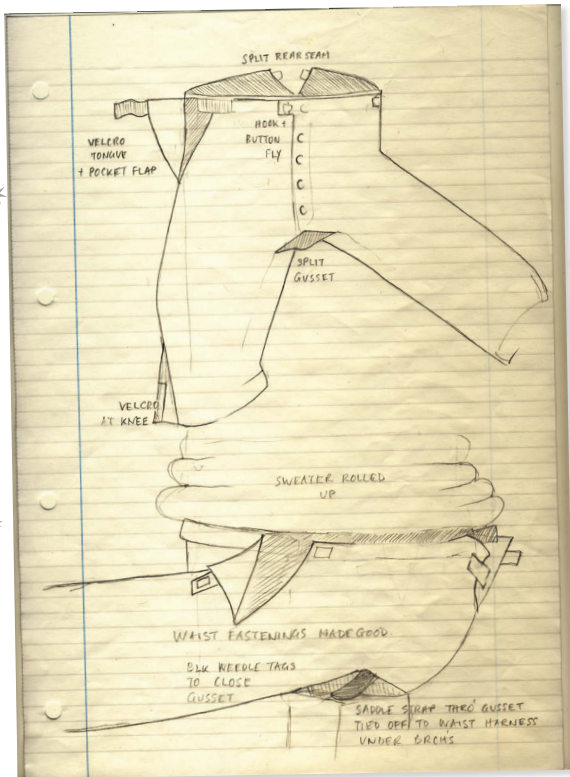 SPLIT REAR SEAM
HOOK +
BUTTON
FLY
VELCRO
TONGUE
+ POCKET FLAP
SPLIT
GUSSET
VELCRO
AT KNEE
SWEATER ROLLED
UP
WAIST FASTENINGS MADE GOOD.
BLK WEEDLE TAGS
TO CLOSE
GUSSET
SADDLE STRAP THRO' GUSSET
TIED OFF TO WAIST HARNESS
UNDER